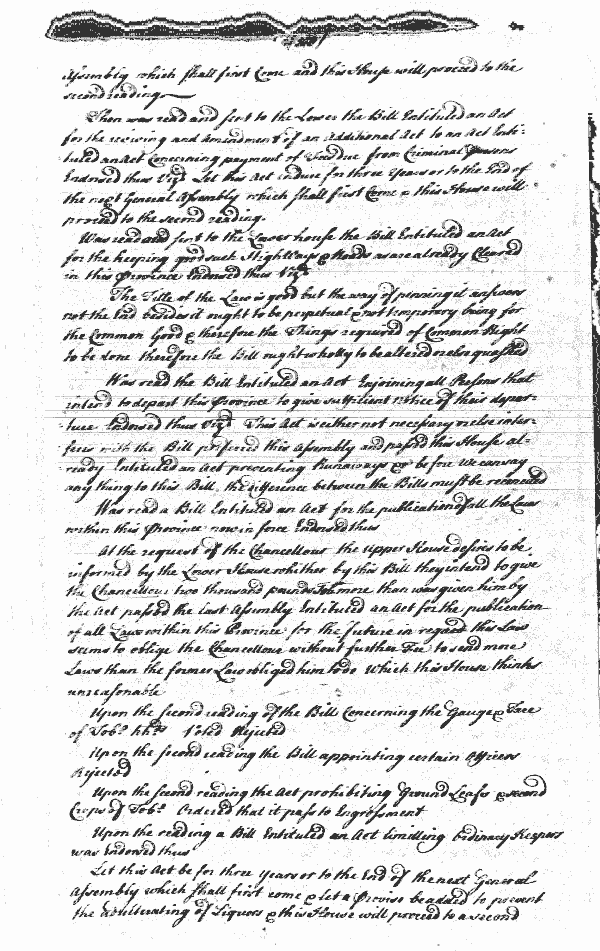 Assembly which shall first Come and this House will proceed to the
second reading
Then was read and sent to the Lower the Bill Entituled an Act
for the reviewing and Amendment of an additional Act to an Act Enti-
tuled an Act Concerning payment of Fees due from Criminal Persons
Endorsed thus Vizt Let this Act indure for three Years or to the End of
the next General Assembly which shall first Come & this House will
proceed to the second reading.
Was read and sent to the Lower house the Bill Entituled an Act
for the keeping good such HighWays & Roads as are already Cleared
in this Province Endorsed thus Vizt
The Title of the Law is good but the way of penning it answers
not the End besides it ought to be perpetual & not temporary being for
the Common Good & therefore the Things required of Common Right
to be done therefore the Bill ought wholly to be altered or else quashed
Was read the Bill Entituled an Act Enjoining all Persons that
intend to depart this Province to give sufficient notice of their depar-
ture Endorsed thus Vizt This Act is either not necessary or else inter-
feres with the Bill preferred this Assembly and passed this House al-
ready Entituled an Act preventing Runaways & before We can say
any thing to this Bill, the difference between the Bills must be reconciled
Was read a Bill Entituled an Act for the publication of all the Laws
within this Province now in force Endorsed thus
At the request of the Chancellour the Upper House desires to be
informed by the Lower House whither by this Bill they intend to give
the Chancellour two thousand pounds Tobo more than was given him by
the Act passed the last Assembly Entituled an Act for the publication
of all Laws within this Province for the future in regard this Law
seems to oblige the Chancellour without further Fee to send more
Laws than the former Law obliged him to do Which this House thinks
unreasonable
Upon the second reading of the Bill Concerning the Gauge & Tare
of Tobo hhds Voted Rejected
Upon the second reading the Bill appointing certain Officers
Rejected
Upon the second reading the Act prohibiting Ground Leafs & second
Crops of Tobo Ordered that it pass to Engrossment
Upon the reading a Bill Entituled an Act limitting Ordinary Keepers
was Endorsed thus
Let this Act be for three years or to the End of the next General
Assembly which shall first come & let a Proviso be added to prevent
the adulterating of Liquors & this House will proceed to a second